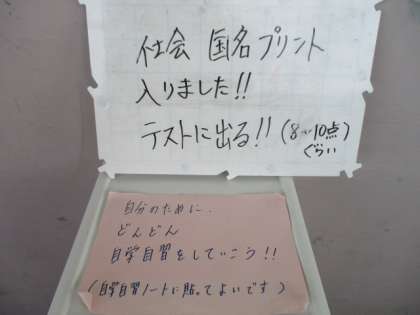 社会 国名プリント
入りました!!
テストに出る!! (8~10点)
ぐらい
自分のために、
どんどん
自学自習をしていこう!!
(自学自習ノートに貼ってよいです)